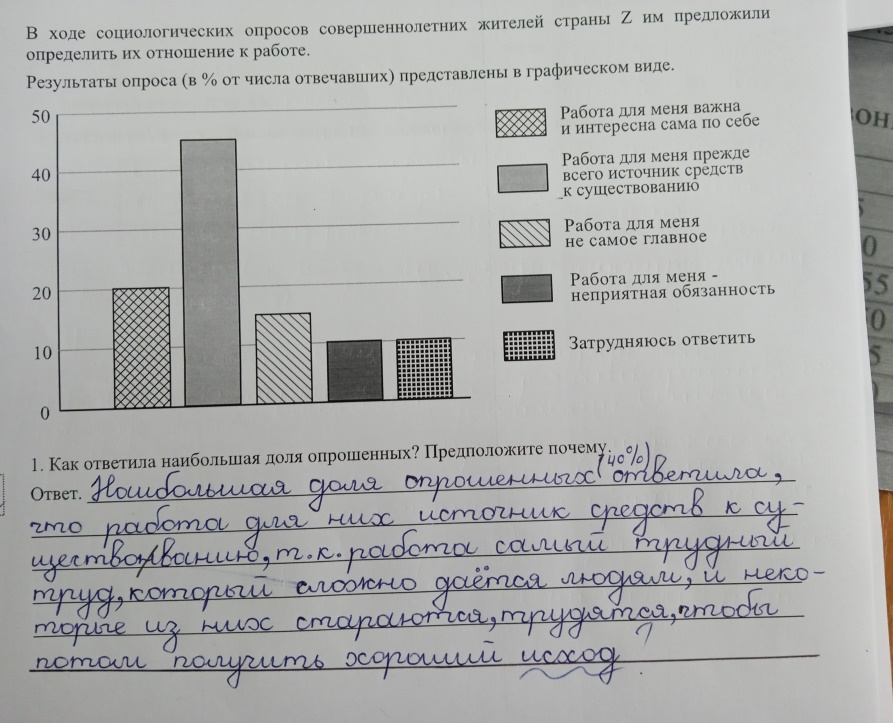 В ходе социологических опросов совершеннолетних жителей страны Z им предложили
определить их отношение к работе.
Результаты опроса (в % от числа отвечавших) представлены в графическом виде.
50
40
30
20
10
0
Работа для меня важна
и интересна сама по себе
Работа для меня прежде
всего источник средств
к существованию
Работа для меня
не самое главное
Работа для меня -
неприятная обязанность
Затрудняюсь ответить
1. Как ответила наибольшая доля опрошенных? Предположите почему.
(40%)
Ответ. Наибольшая доля опрошенных ответила,
что работа для них источник средств к су-
ществованию, т.к. работа самый трудный
труд, который сложно даётся людям, и неко-
торые из них стараются, трудятся, чтобы
потом получить хороший исход ?
ОН
5
0
55
0
5